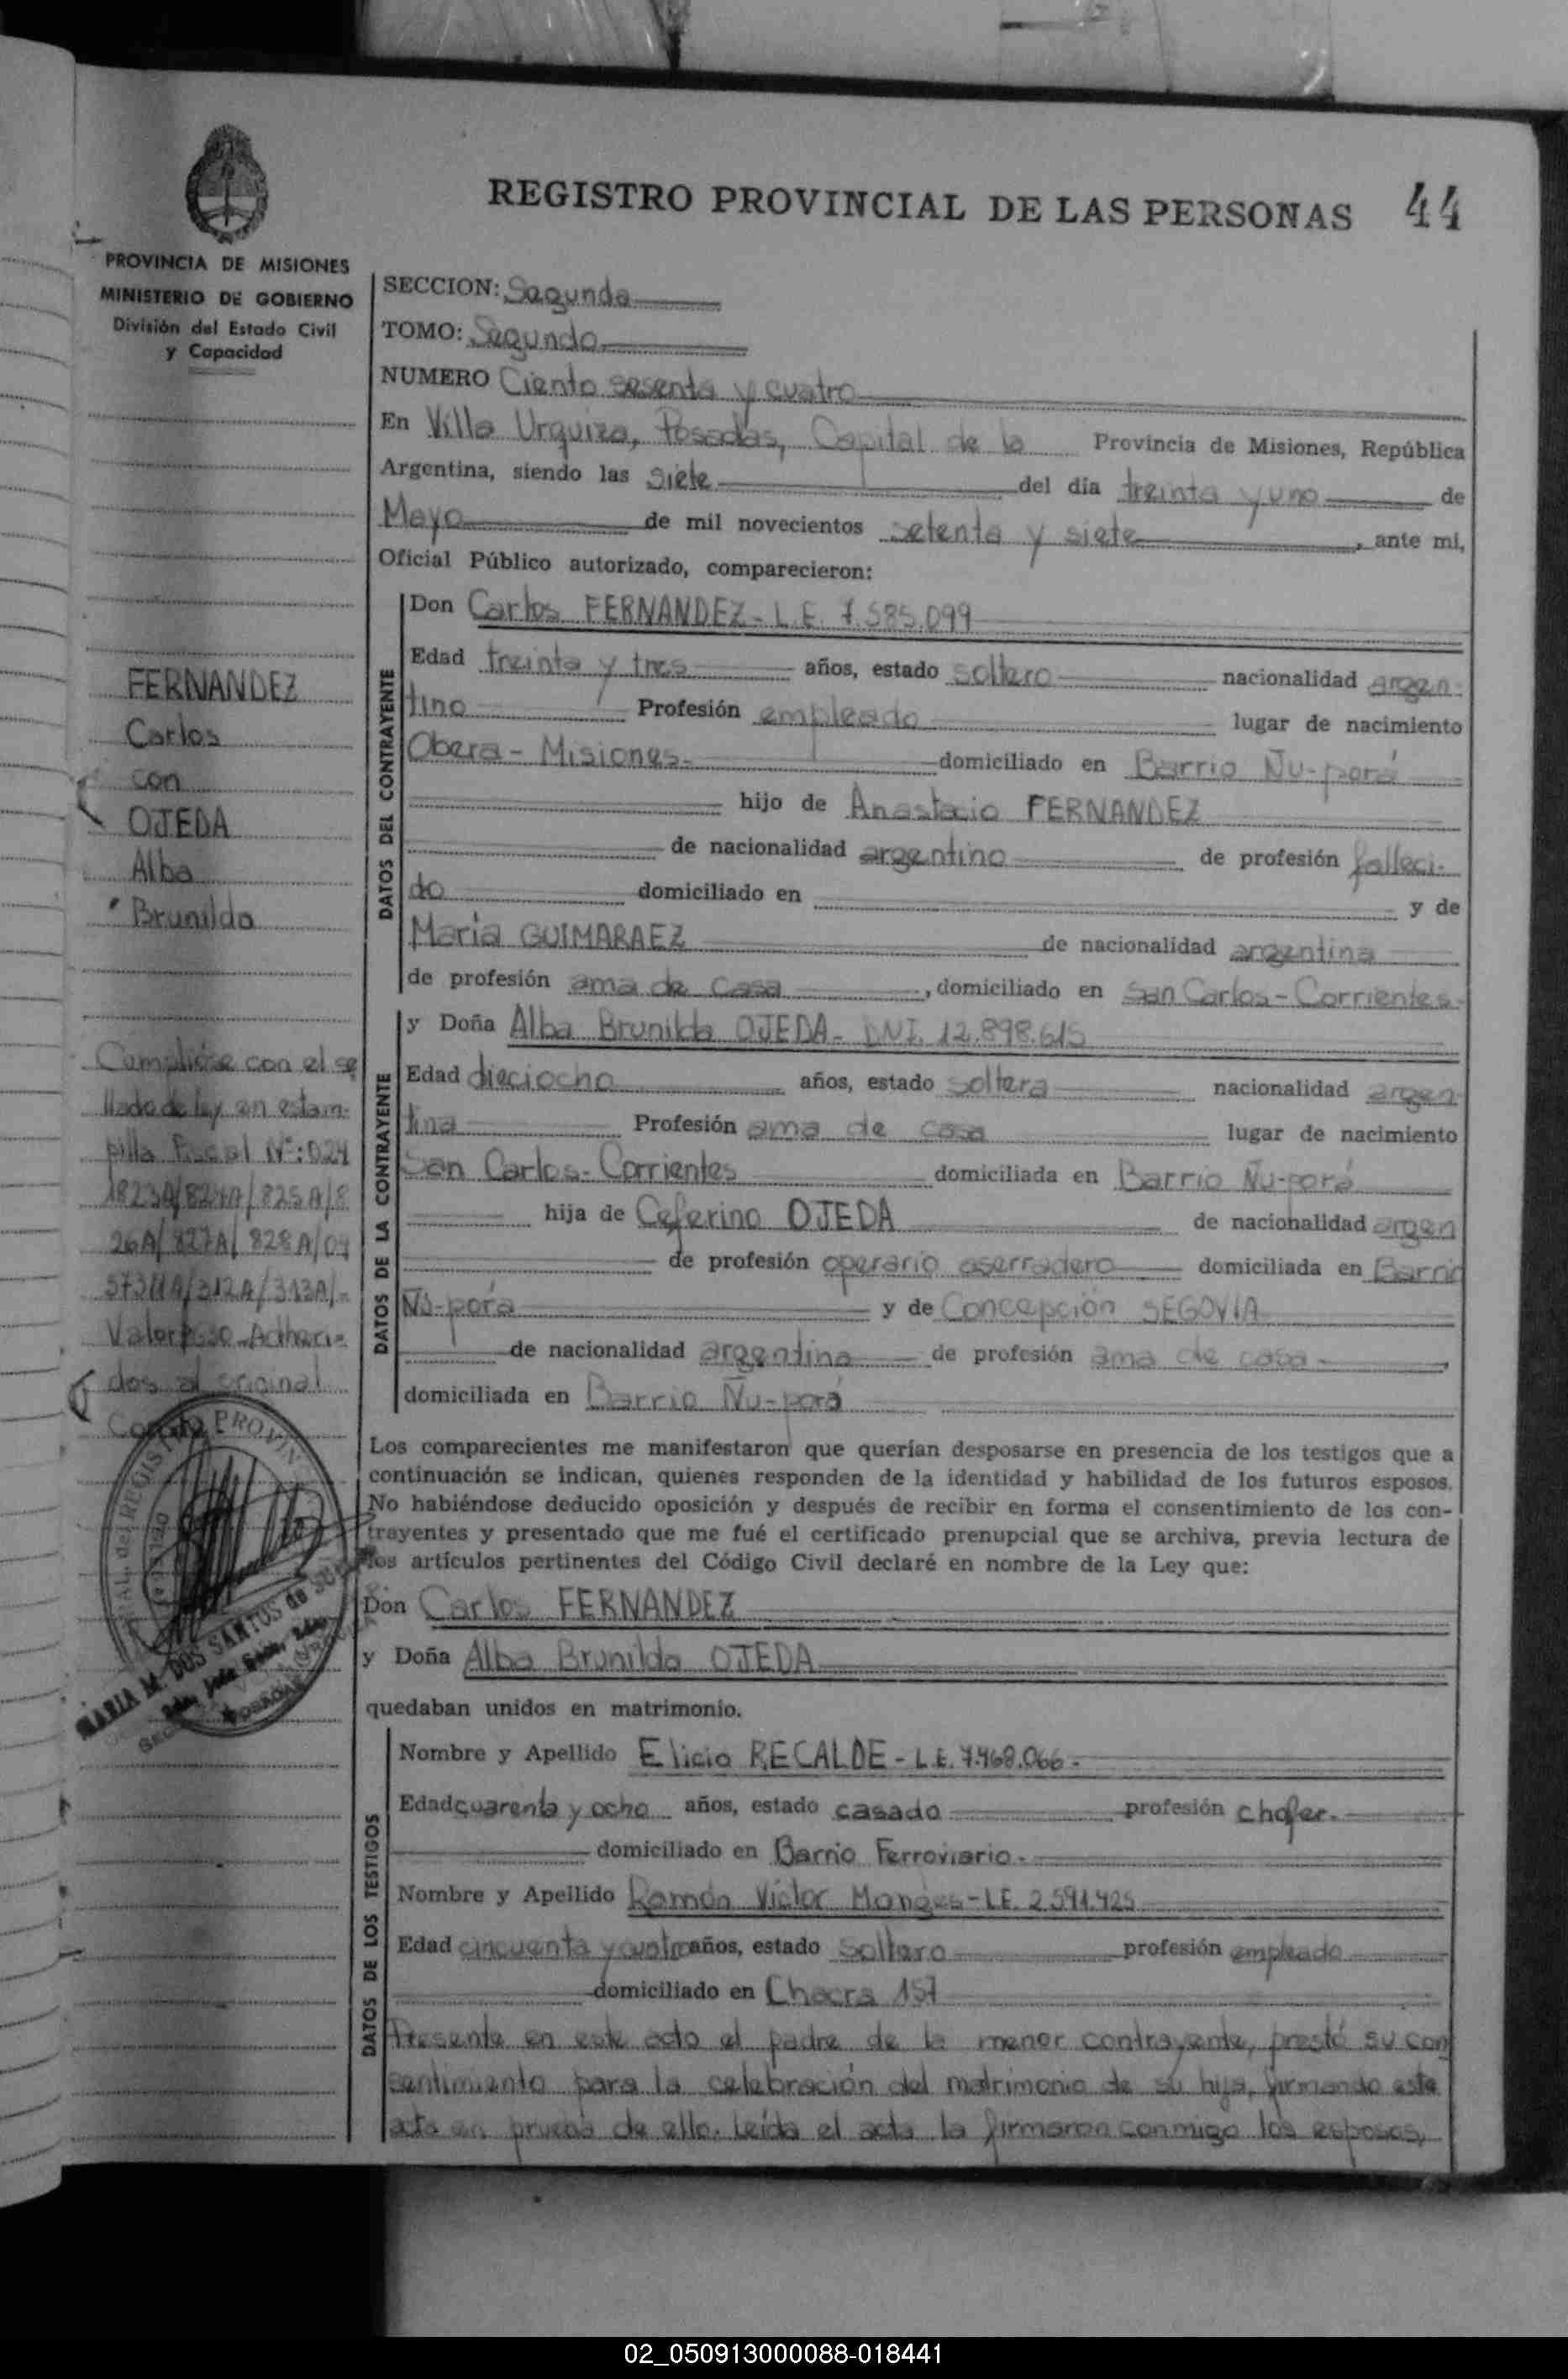 REGISTRO PROVINCIAL DE LAS PERSONAS 44
PROVINCIA DE MISIONES
MINISTERIO DE GOBIERNO
División del Estado Civil
y Capacidad
FERNANDEZ
Carlos
con
OJEDA
Alba
Brunilda
Cumplióse con el se
llado de ley en estam-
pilla Fiscal Nº: 024
1823A/824A/825A/8
26A/827A/828A/04
57311A/312A/313A/-
Adheri-
dos al original
SECCION: Segunda
TOMO: Segundo
NUMERO Ciento sesenta y cuatro
En Villa Urquiza, Posadas, Capital de la Provincia de Misiones, República
Argentina, siendo las siete del día treinta y uno de
Mayo de mil novecientos setenta y siete, ante mi,
Oficial Público autorizado, comparecieron:
DATOS DEL CONTRAYENTE
Don Carlos FERNANDEZ - L.E. 7.585.099
Edad treinta y tres años, estado soltero nacionalidad argen-
tino Profesión empleado lugar de nacimiento
Obera - Misiones- domiciliado en Barrio Ñu-porá
hijo de Anastacio FERNANDEZ
de nacionalidad argentino de profesión falleci-
do domiciliado en y de
Maria GUIMARAEZ de nacionalidad argentina
de profesión ama de casa, domiciliado en San Carlos - Corrientes-
DATOS DE LA CONTRAYENTE
y Doña Alba Brunilda OJEDA- DNI. 12.898.615
Edad dieciocho años, estado soltera nacionalidad argen-
tina Profesión ama de casa lugar de nacimiento
San Carlos- Corrientes domiciliada en Barrio Ñu-porá
hija de Ceferino OJEDA de nacionalidad argen
de profesión operario aserradero domiciliada en Barrio
Ñu-porá y de Concepción SEGOVIA
de nacionalidad argentina de profesión ama de casa -,
domiciliada en Barrio Ñu-porá
Los comparecientes me manifestaron que querían desposarse en presencia de los testigos que a
continuación se indican, quienes responden de la identidad y habilidad de los futuros esposos.
No habiéndose deducido oposición y después de recibir en forma el consentimiento de los con-
trayentes y presentado que me fué el certificado prenupcial que se archiva, previa lectura de
los artículos pertinentes del Código Civil declaré en nombre de la Ley que:
Don Carlos FERNANDEZ
y Doña Alba Brunilda OJEDA
quedaban unidos en matrimonio.
MARIA M. DOS SANTOS de
DATOS DE LOS TESTIGOS
Nombre y Apellido Elicio RECALDE - L.E. 7.468.066 -
Edad cuarenta y ocho años, estado casado profesión chofer.
domiciliado en Barrio Ferroviario-
Nombre y Apellido Ramón Victor Monges - LE. 2.591.425
Edad cincuenta y cuatro años, estado soltero profesión empleado
domiciliado en Chacra 157
Presente en este acto el padre de la menor contrayente, prestó su con
sentimiento para la celebración del matrimonio de su hija, firmando este
acta en prueba de ello. Leída el acta la firmaron conmigo los esposos,
02_050913000088-018441